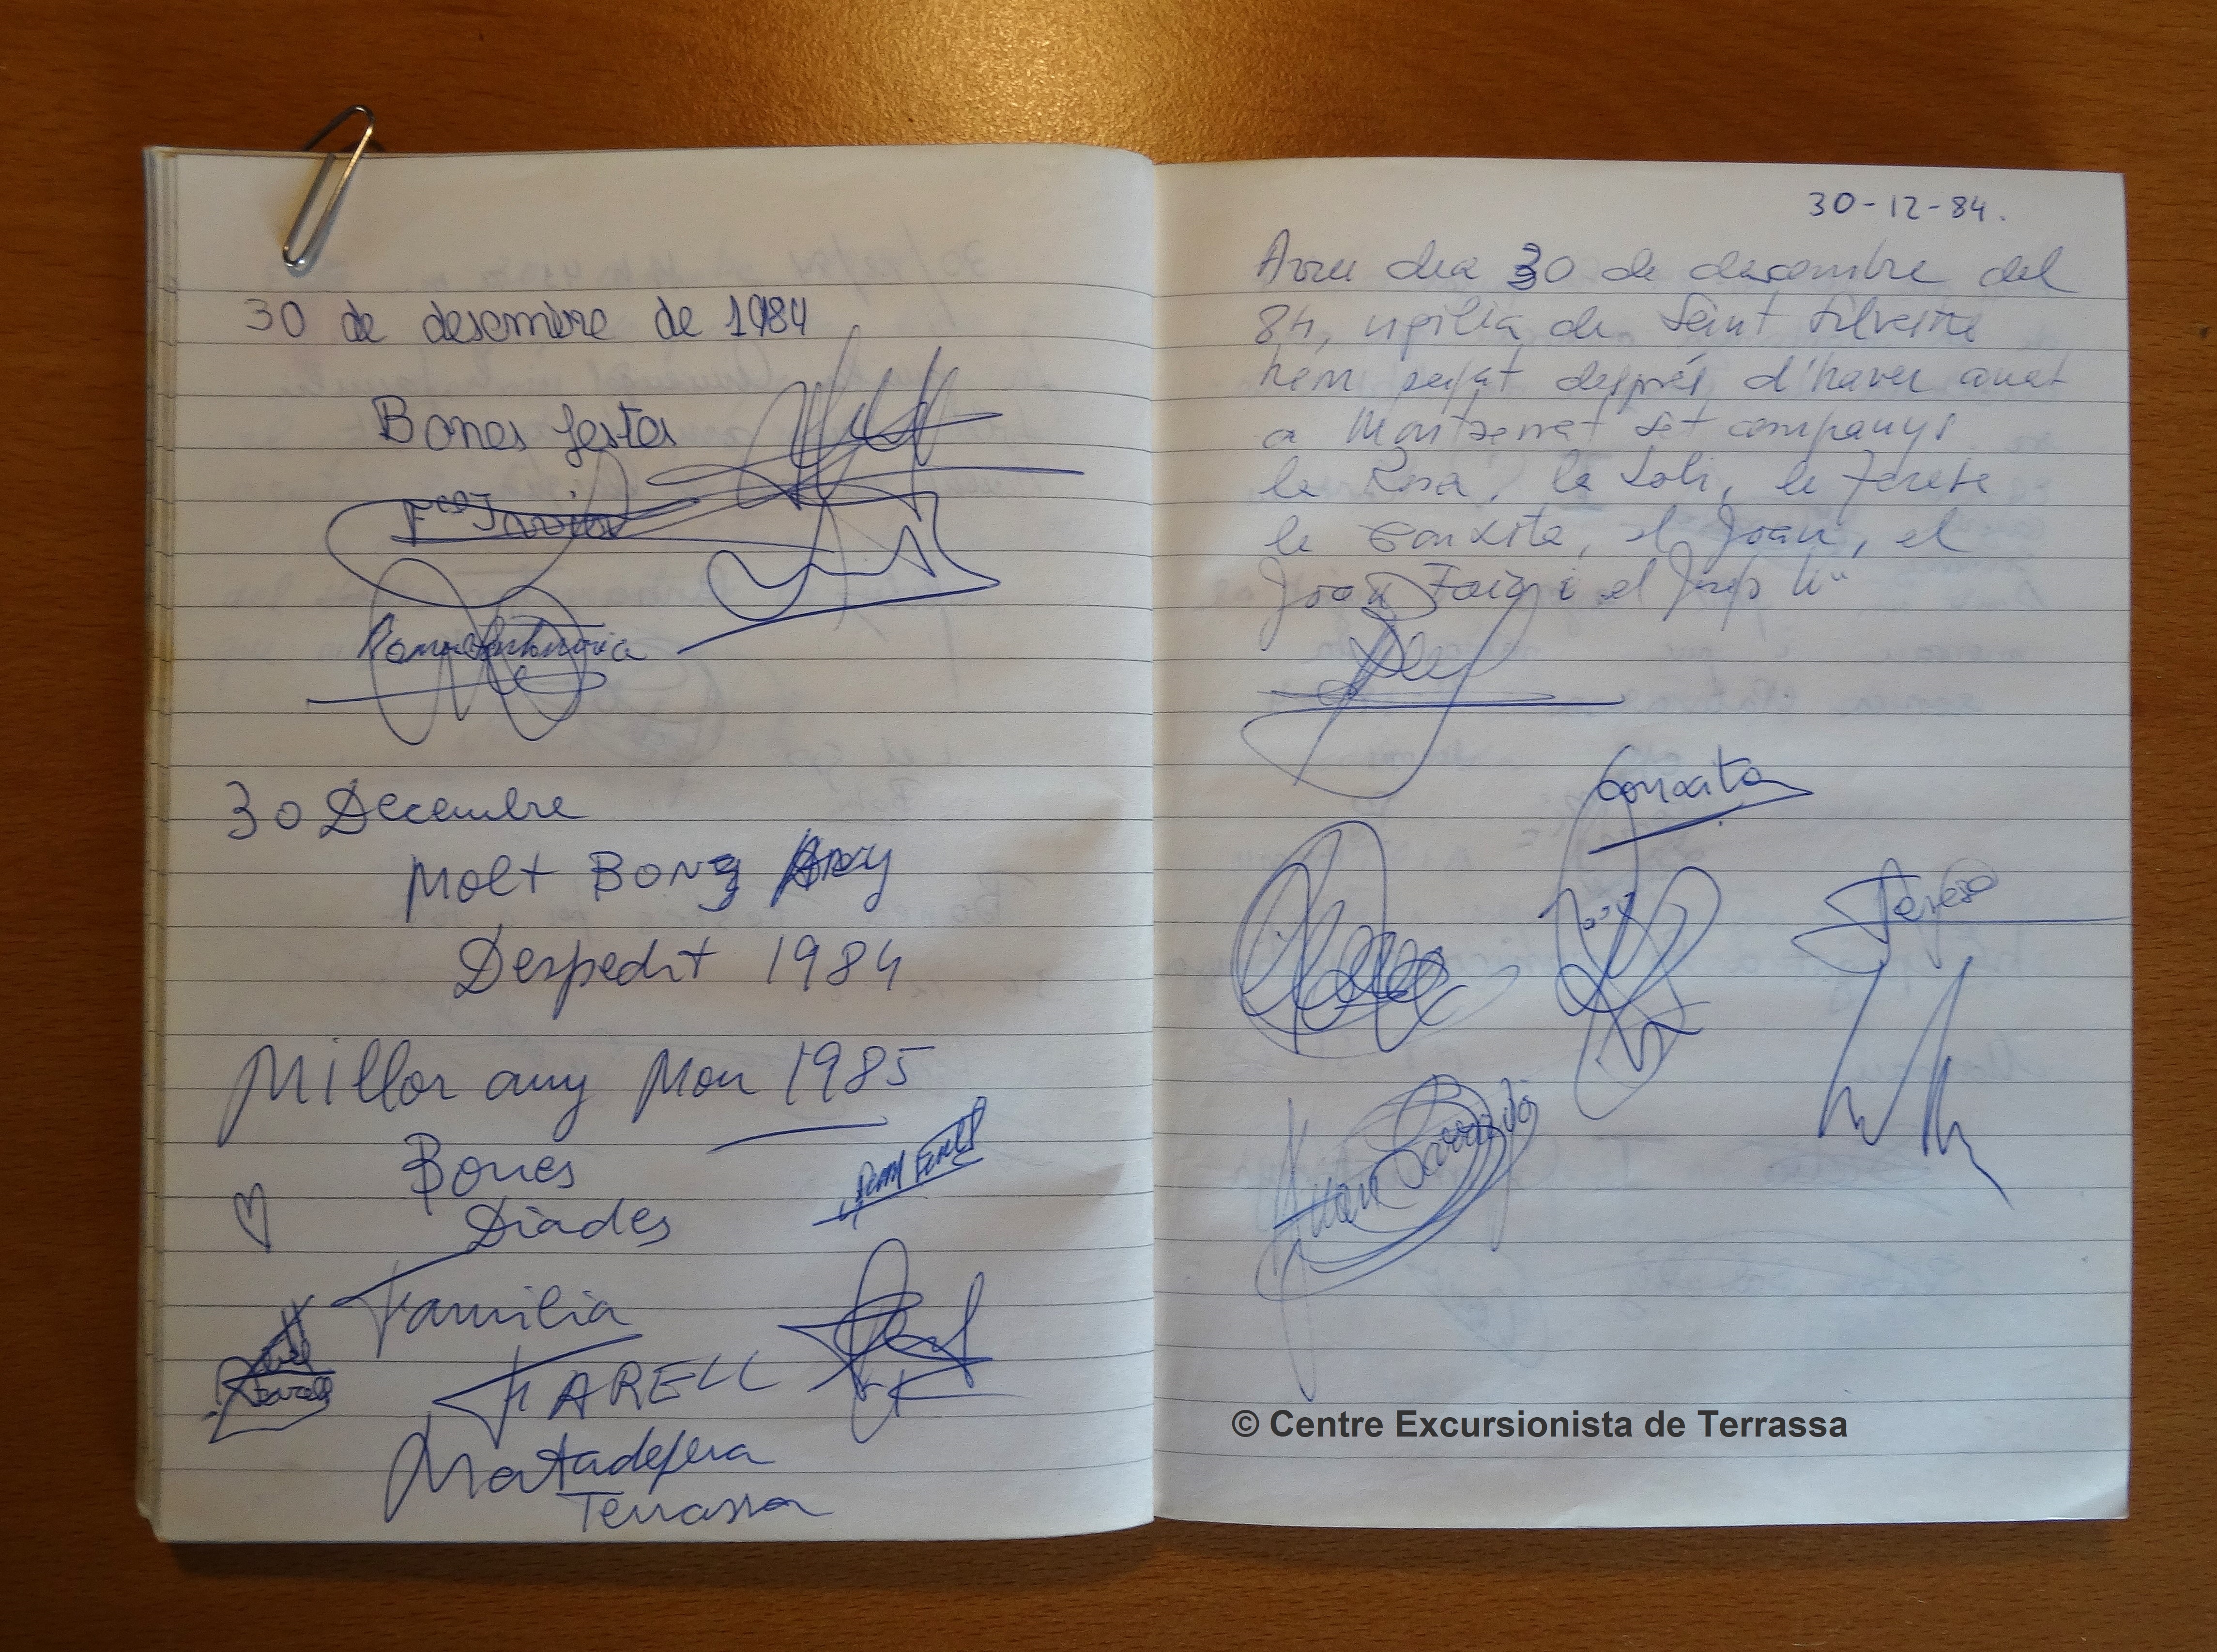 30 de desembre de 1984
Bones festes
Fco Javier
30 Decembre
Molt Bony Any
Despedit 1984
Millor any Nou 1985
Bones
Diades
Familia
FARELL
Matadepera
Terrassa
30-12-84.
Avui dia 30 de decembre del
84, vigilia de Saint Silvestre
hem pujat després d'haver anat
a Montserrat set companys
la Rosa, la Loli, la Teresa
la Conxita, el Joan, el
Joan i el Josep
Conxita
Teresa
Juan Garrido
© Centre Excursionista de Terrassa